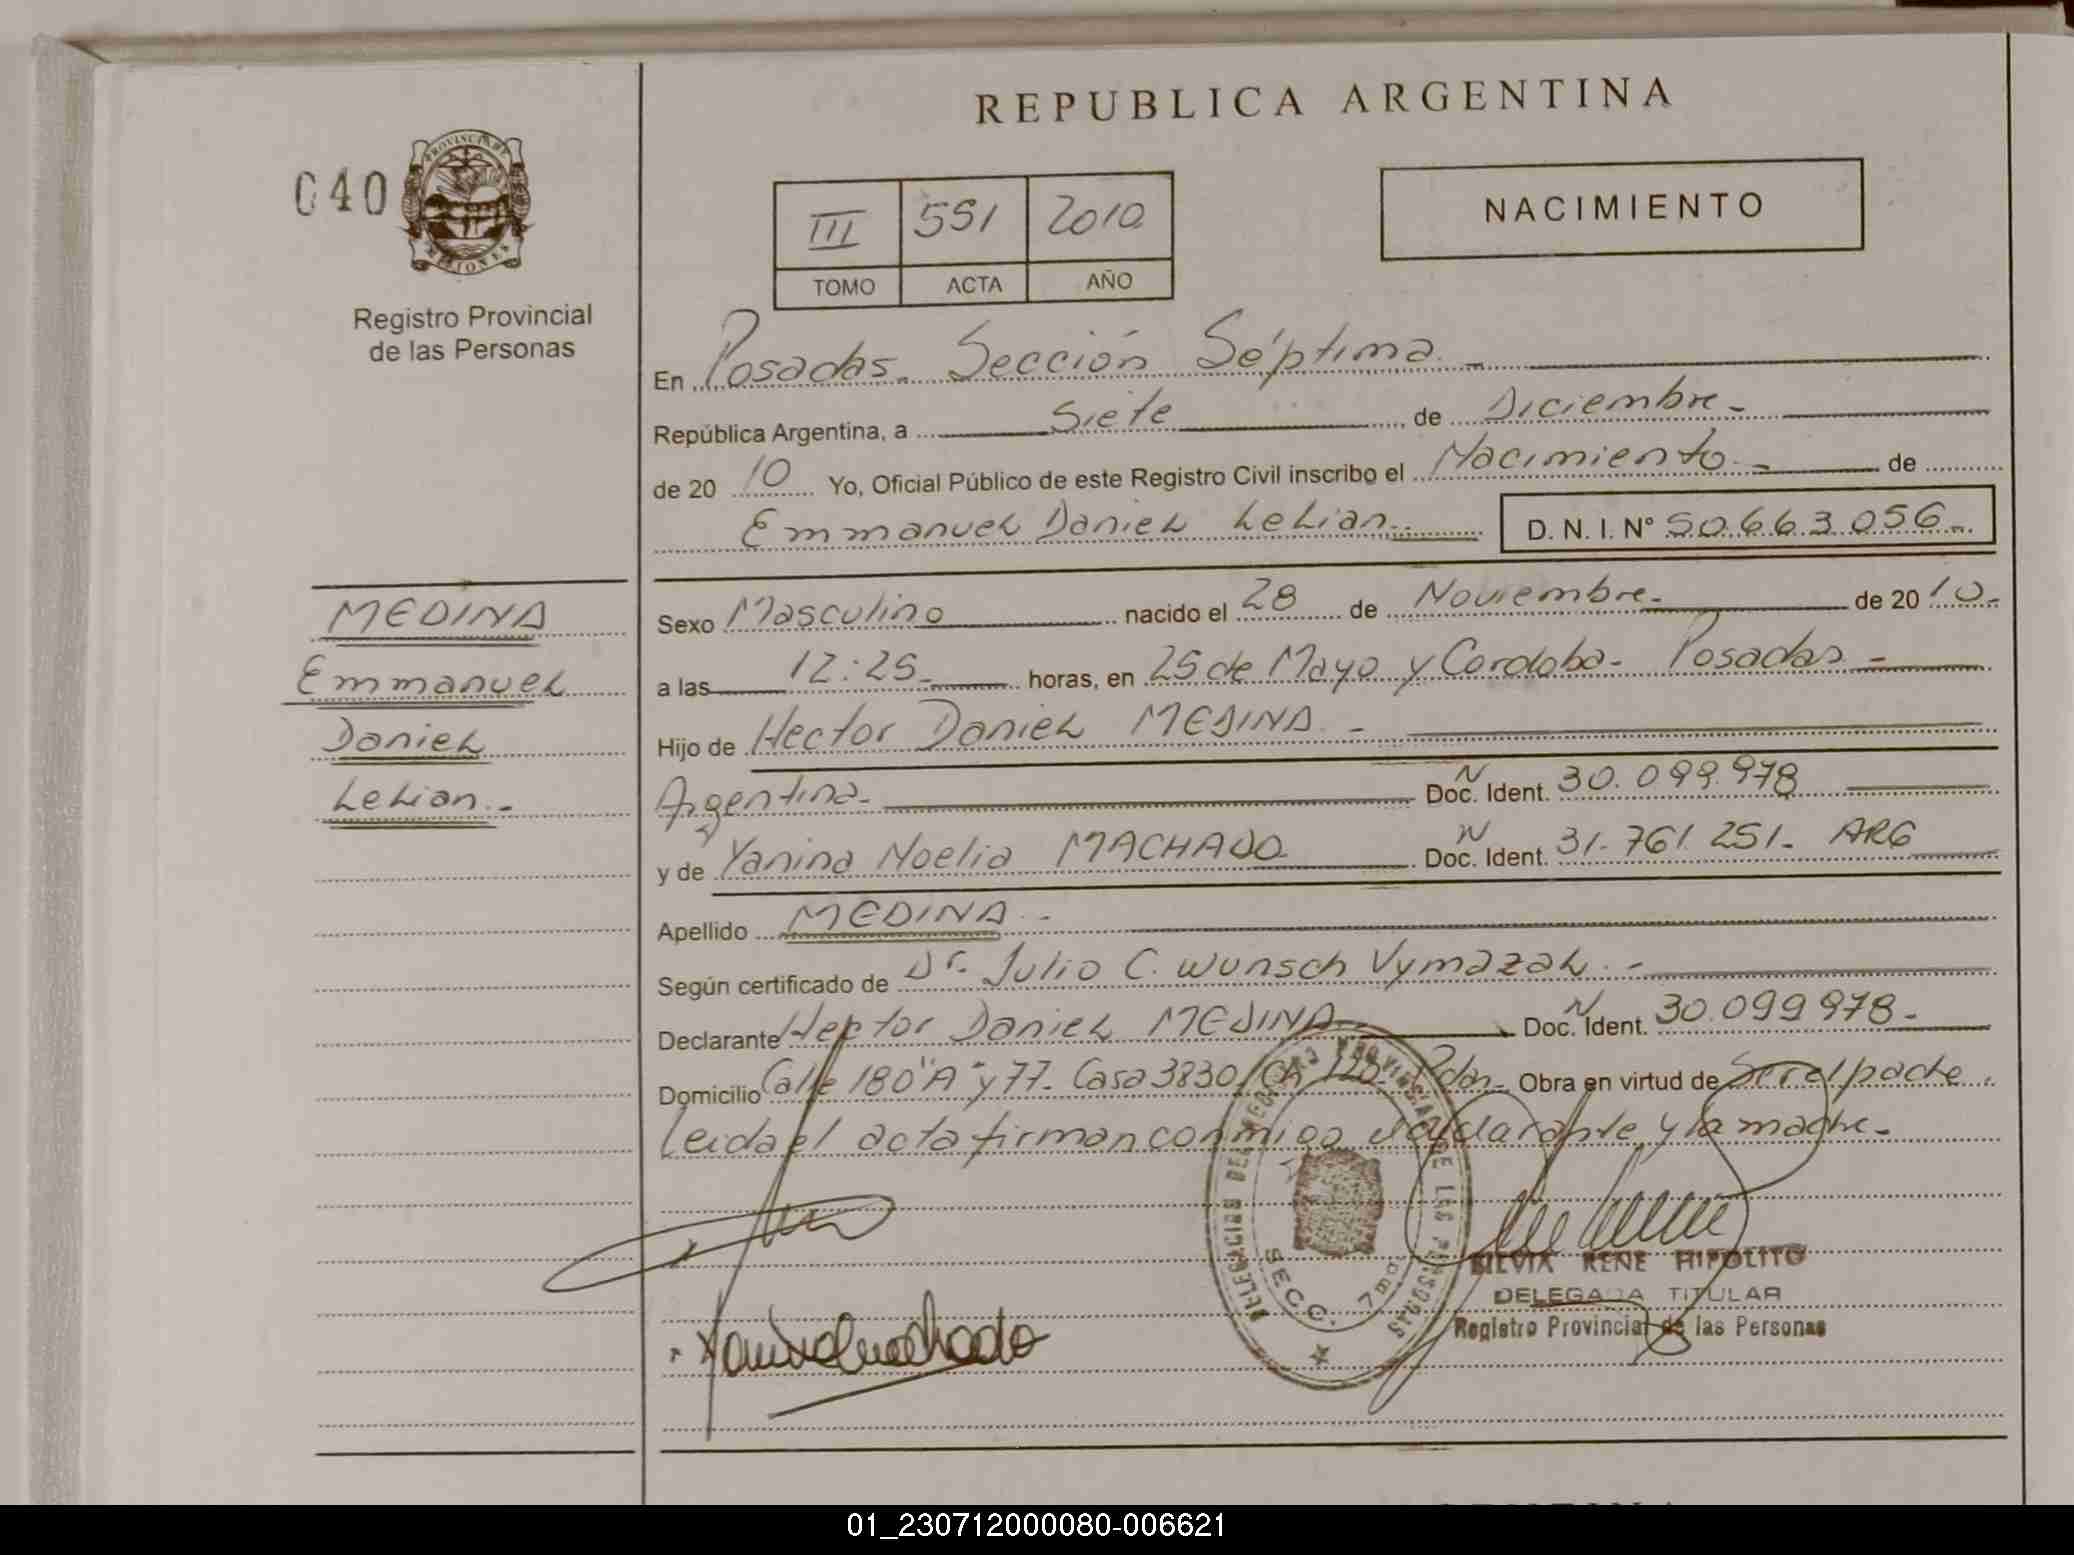 REPUBLICA ARGENTINA
040
PROVINCIA DE MISIONES
Registro Provincial
de las Personas
III 551 2010
TOMO ACTA AÑO
NACIMIENTO
En Posadas. Sección Séptima.-
República Argentina, a Siete de Diciembre.-
de 2010 Yo, Oficial Público de este Registro Civil inscribo el Nacimiento.- de
Emmanuel Daniel Lelian.- D. N. I. N° 50.663.056.-
MEDINA
Emmanuel
Daniel
Lelian.-
Sexo Masculino nacido el 28 de Noviembre.- de 2010.-
a las 12:25.- horas, en 25 de Mayo y Cordoba- Posadas-
Hijo de Hector Daniel MEDINA.-
Argentina.- N Doc. Ident. 30.099.978
y de Yanina Noelia MACHADO N Doc. Ident. 31.761.251.- ARG
Apellido MEDINA.-
Según certificado de Dr. Julio C. Wunsch Vymazal.-
Declarante Hector Daniel MEDINA N Doc. Ident. 30.099.978.-
Domicilio Calle 180"A" y 77- Casa 3830 CH 128- Pdas- Obra en virtud de Ser el padre.
Leida el acta firman conmigo el declarante y la madre.-
DELEGACION DEL REGISTRO PROVINCIAL DE LAS PERSONAS
SECC. 7ma.
SILVIA RENE HIPOLITO
DELEGADA TITULAR
Registro Provincial de las Personas
Yanina Machado
01_230712000080-006621